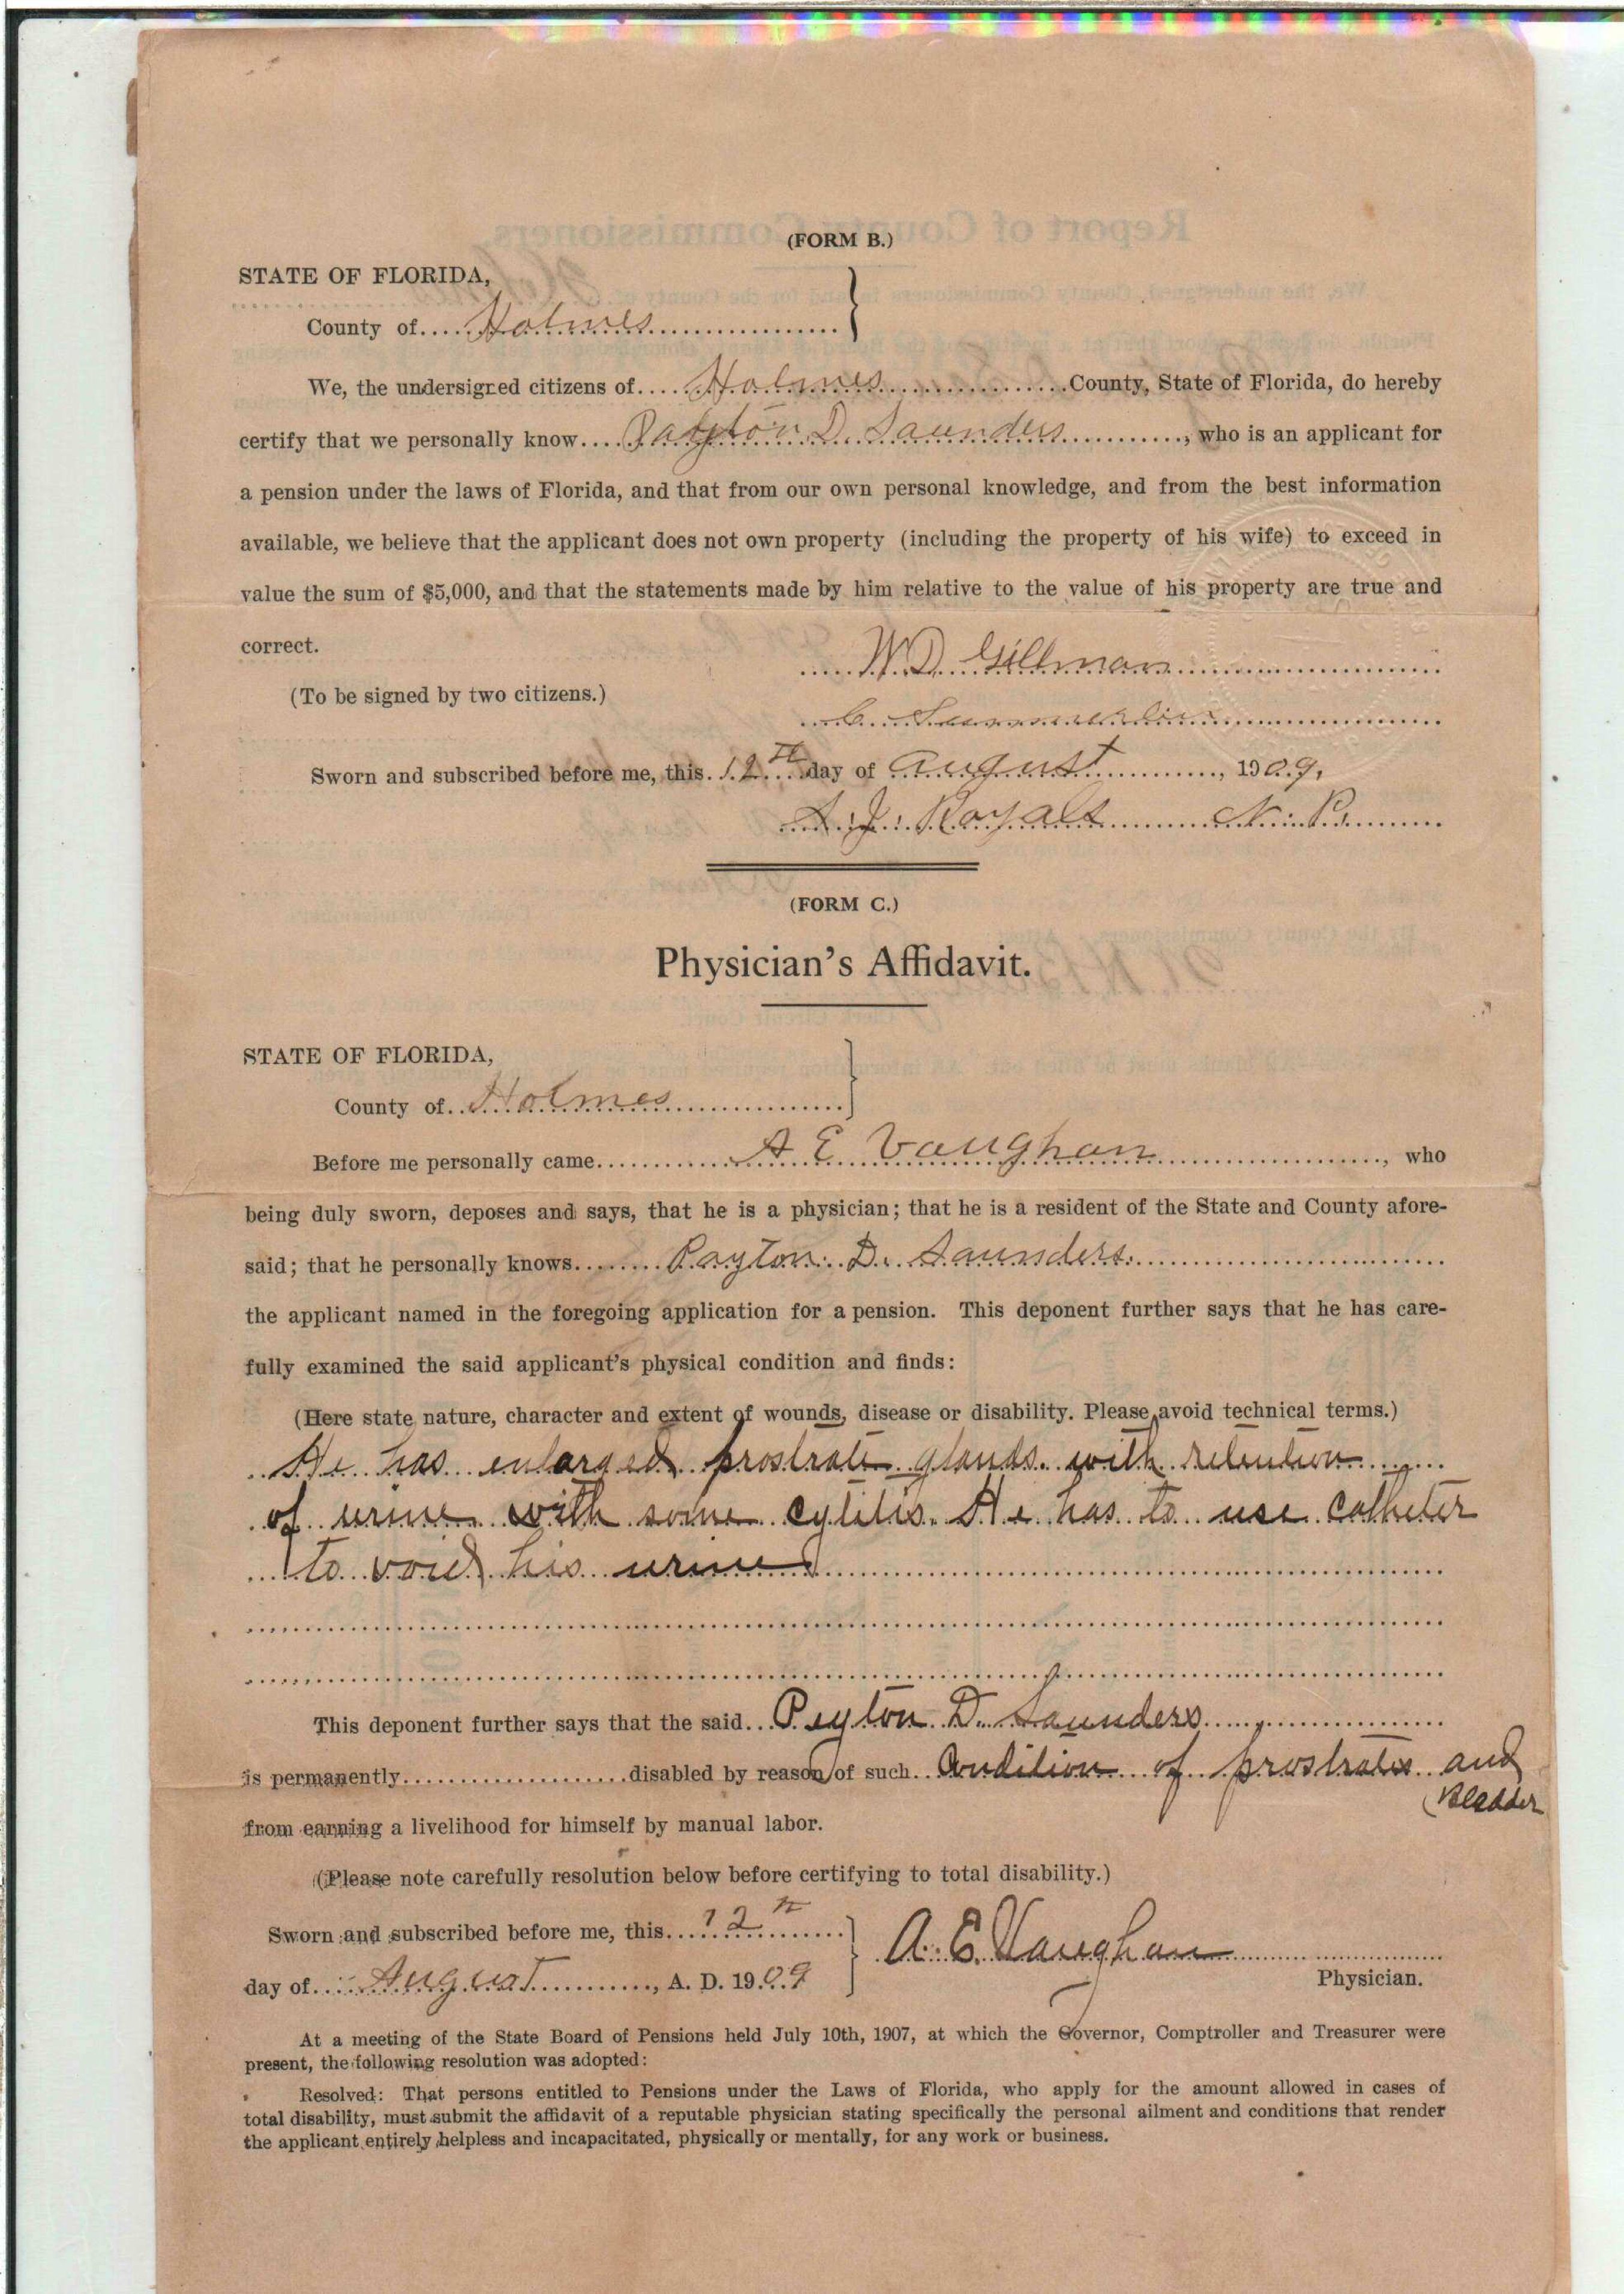 (FORM B.)
STATE OF FLORIDA,
County of Holmes
We, the undersigned citizens of Holmes County, State of Florida, do hereby
certify that we personally know Payton D. Saunders, who is an applicant for
a pension under the laws of Florida, and that from our own personal knowledge, and from the best information
available, we believe that the applicant does not own property (including the property of his wife) to exceed in
value the sum of $5,000, and that the statements made by him relative to the value of his property are true and
correct.
W. D. Gillman
(To be signed by two citizens.)
C.
Sworn and subscribed before me, this 12th day of August, 1909.
A. J. Royals N. P.
(FORM C.)
Physician's Affidavit.
STATE OF FLORIDA,
County of Holmes
Before me personally came A E Vaughan, who
being duly sworn, deposes and says, that he is a physician; that he is a resident of the State and County afore-
said; that he personally knows Payton D. Saunders.
the applicant named in the foregoing application for a pension. This deponent further says that he has care-
fully examined the said applicant's physical condition and finds:
(Here state nature, character and extent of wounds, disease or disability. Please avoid technical terms.)
He has enlarged prostrate glands with retention
of urine with some cytitis. He has to use Catheter
to void his urine
This deponent further says that the said Peyton D. Saunders
is permanently disabled by reason of such Condition of prostrates and
Bladder
from earning a livelihood for himself by manual labor.
(Please note carefully resolution below before certifying to total disability.)
Sworn and subscribed before me, this 12th
A. E. Vaughan
day of August, A. D. 1909
Physician.
At a meeting of the State Board of Pensions held July 10th, 1907, at which the Governor, Comptroller and Treasurer were
present, the following resolution was adopted:
Resolved: That persons entitled to Pensions under the Laws of Florida, who apply for the amount allowed in cases of
total disability, must submit the affidavit of a reputable physician stating specifically the personal ailment and conditions that render
the applicant entirely helpless and incapacitated, physically or mentally, for any work or business.